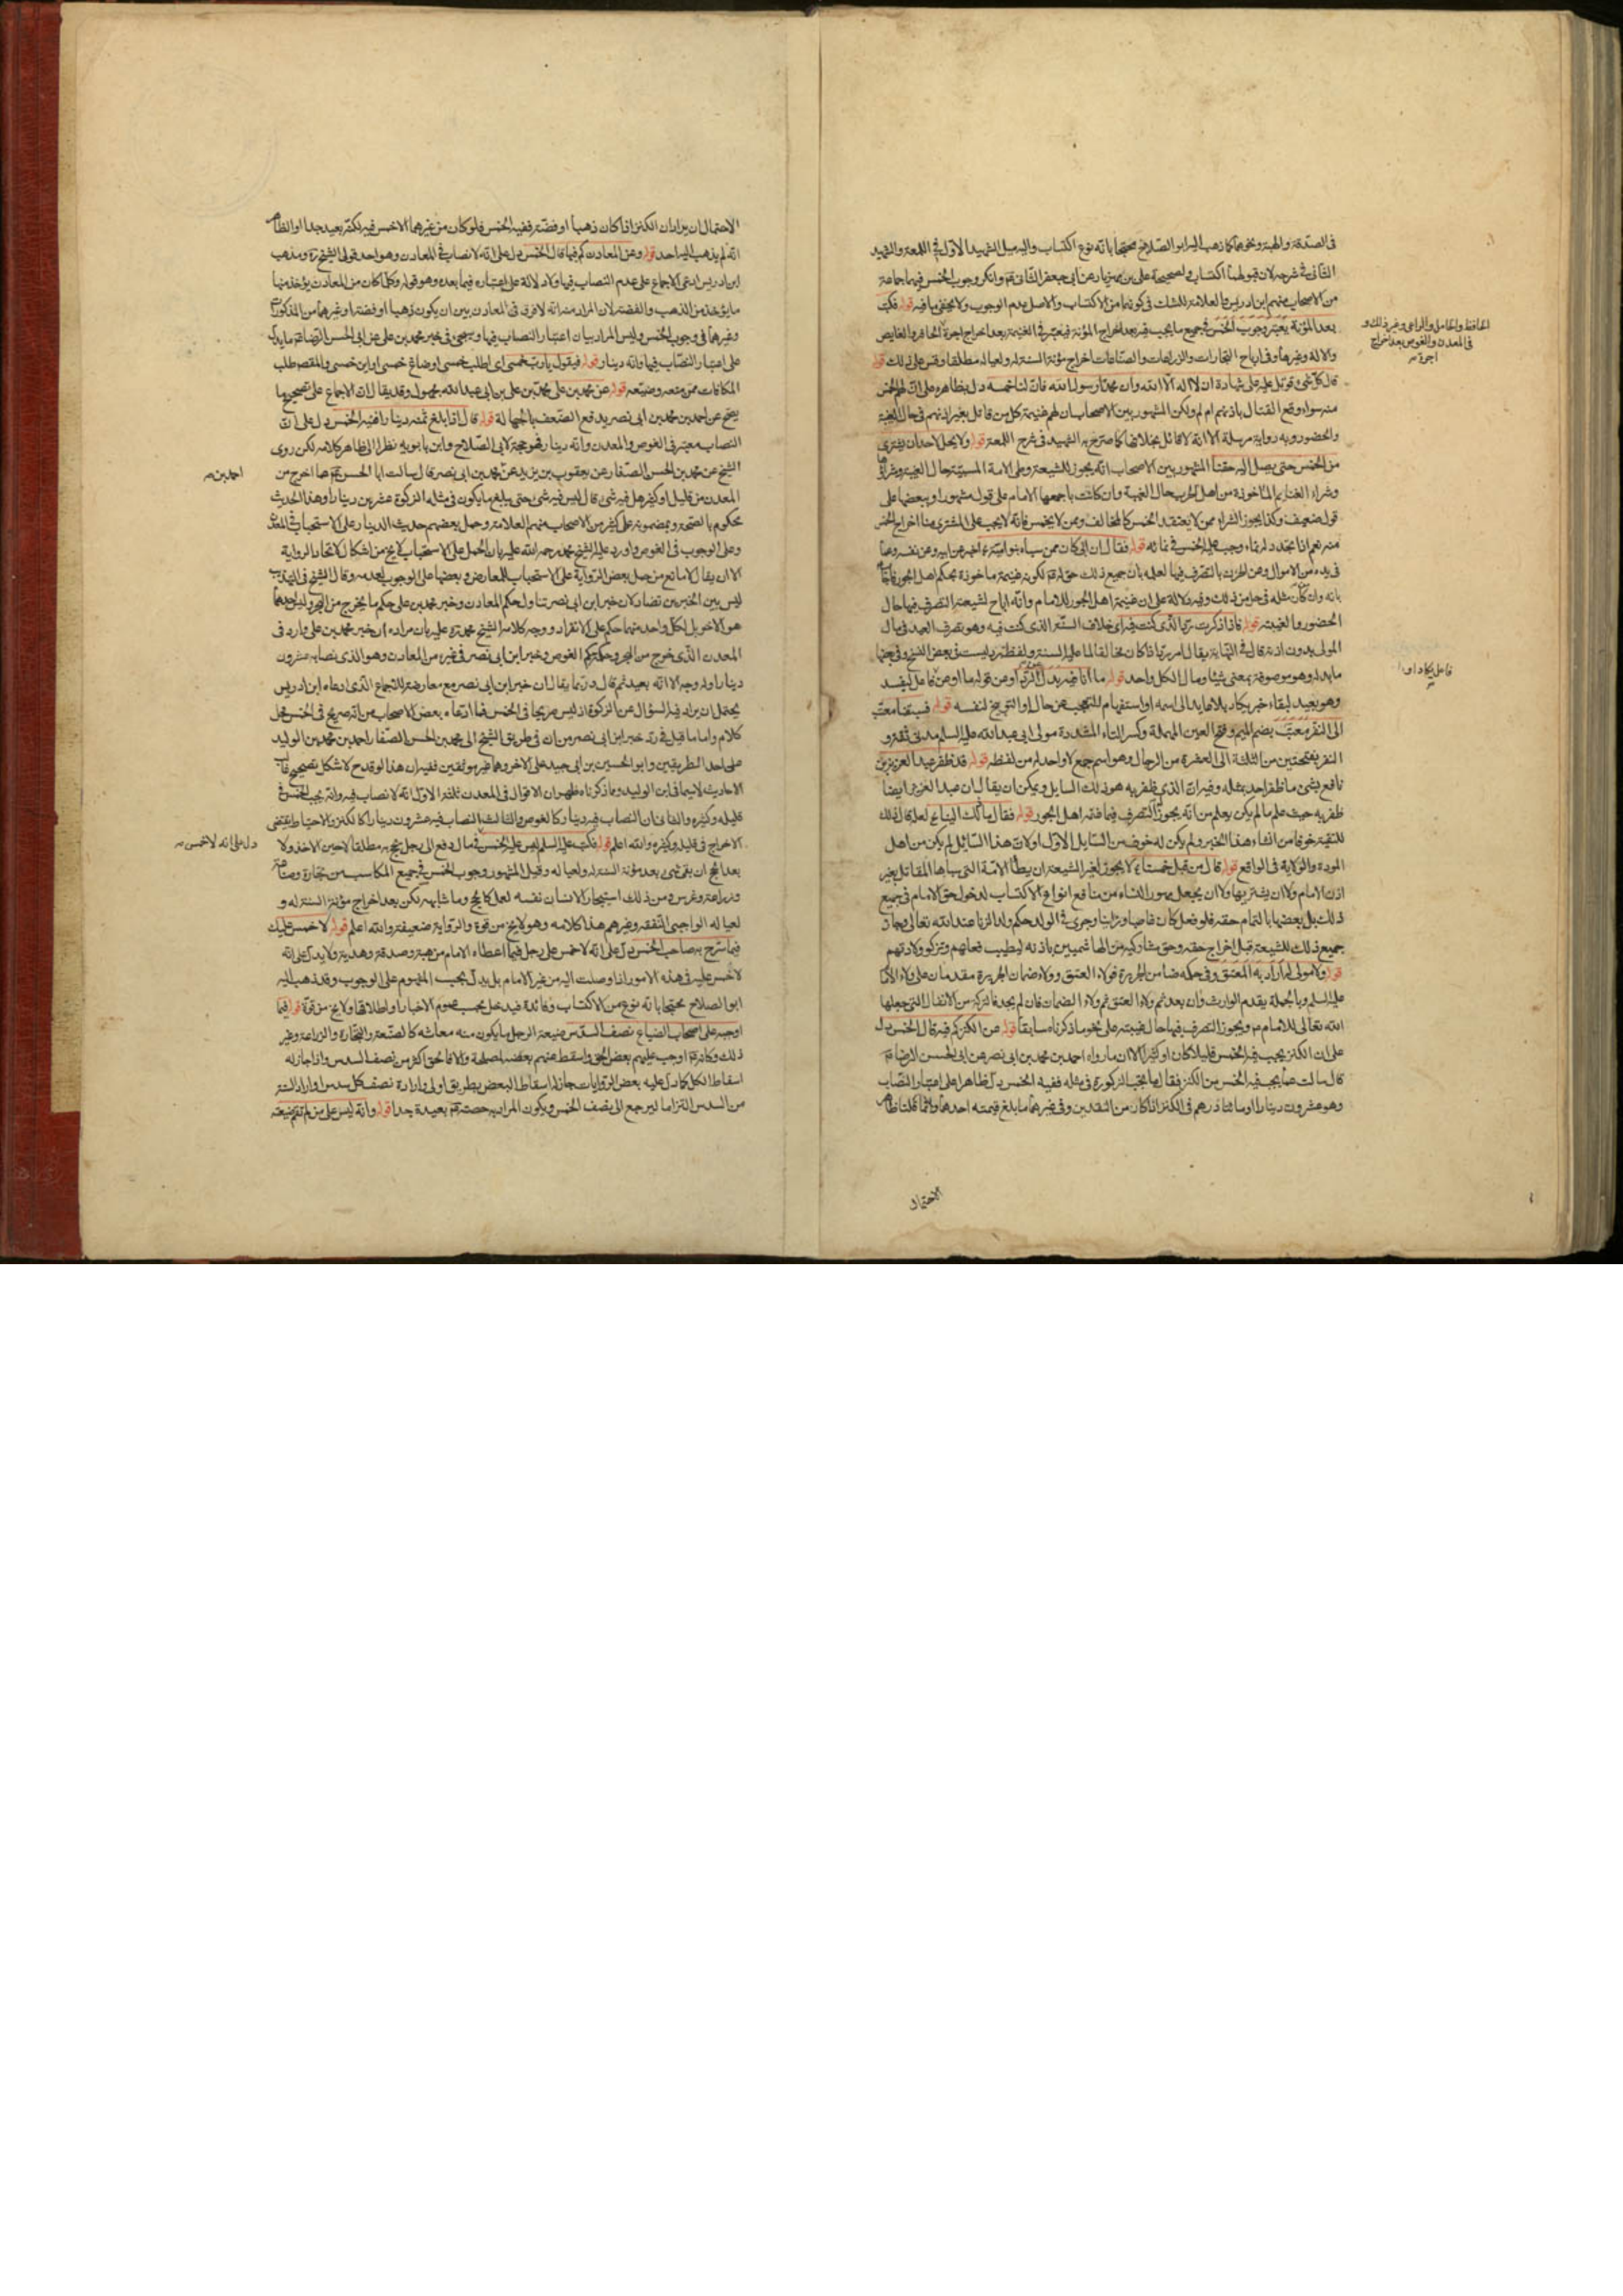 فى الصدقة والهبة ونحوهما كما ذهب اليه ابو الصلاح محتجا بانه نوع اكتساب واليه ميل الشهيد الاول فى اللمعة والشهيد
الثانى فى شرحه لان قبولهما اكتساب ولصحيحة على بن مهزيار عن ابى جعفر الثانى وانكر وجوب الخمس فيها جماعة
من الاصحاب منهم ابن ادريس والعلامة للشك فى كونها من الاكتساب والاصل عدم الوجوب ولا يخفى ما فيه قوله فكتب
بعد المؤنة يعتبر وجوب الخمس فى جميع ما يجب فيه بعد اخراج المؤنة فيعتبر فى الغنيمة بعد اخراج اجرة الحافر والغايص
والالة وغيرها وفى ارباح التجارات والزراعات والصناعات اخراج مؤنة السنة له ولعياله مطلقا وقس على ذلك قوله
قال كل شئ قوتل عليه على شهادة ان لا اله الا الله وان محمدا رسول الله فان لنا خمسه دل بظاهره على ان لهم الخمس
منه سواء وقع القتال باذنهم ام لم ولكن المشهور بين الاصحاب ان لهم غنيمة كل من قاتل بغير اذنهم فى حال الغيبة
والحضور وبه رواية مرسلة الا انه لا قائل بخلافها كما صرح به الشهيد فى شرح اللمعة قوله ولا يحل لاحد ان يشترى
من الخمس حتى يصل اليه حقنا المشهور بين الاصحاب انه يجوز للشيعة وطى الامة المسبية حال الغيبة وشراؤها
وشراء الغنايم الماخوذة من اهل الحرب حال الغيبة وان كانت باجمعها للامام على قول مشهور او بعضها على
قول ضعيف وكذا يجوز الشراء ممن لا يعتقد الخمس كالمخالف وممن لا يخمس فانه لا يجب على المشترى هنا اخراج الخمس
منه نعم اذا تجدد له نماء وجب عليه الخمس فى نمائه قوله فقال ان ابى كان ممن سباه بنو امية
فى يده من الاموال وعن الحرث بالتصرف فيها لعلمه بان جميع ذلك حق له لكونه غنيمة ماخوذة بحكم اهل الجور فاجاب
بانه وان كان مثله فى حل من ذلك وفيه دلالة على ان غنيمة اهل الجور للامام وانه اباح لشيعته التصرف فيها حال
الحضور والغيبة قوله فاذا ذكرت رد الذى كنت فيه اى خلاف الستر الذى كنت فيه وهو تصرف العبد فى مال
المولى بدون اذنه قال فى النهاية يقال امر بد اذا كان مخالفا لما عليه السنة ولفظة رد ليست فى بعض النسخ وفى بعضها
ما بدله وهو موصوفة بمعنى شيئا ومال الكل واحد قوله ما انا فيه بدل
وهو بعيد لبقاء خبر يكاد بلا عايد الى اسمه او استفهام للتعجب عن حال او التوبيخ لنفسه قوله فسبقنا معتب
الى النفر معتب بضم الميم وفتح العين المهملة وكسر التاء المشددة مولى ابى عبد الله عليه السلم مدنى ثقة و
النفر بفتحتين من الثلثة الى العشرة من الرجال وهو اسم جمع لا واحد له من لفظه قوله قد ظفر عبد العزيز بن
نافع بشئ ما ظفر احد بمثله وفيه ان الذى ظفر به هو ذلك السايل ويمكن ان يقال ان عبد العزيز ايضا
ظفر به حيث علم ما لم يكن يعلم من انه يجوز التصرف فيما فى يد اهل الجور قوله فقال ما ذلك الينا ع لعله قال ذلك
للتقية خوفا من افشاء هذا الخبر ولم يكن له خوف من السايل الاول او لان هذا السائل لم يكن من اهل
المودة والولاية فى الواقع قوله قال من قبل خمسنا ع لا يجوز لغير الشيعة ان يطأ الامة التى سباها المقاتل بغير
اذن الامام ولا ان يشتريها ولا ان يجعل مهور النساء من منافع انواع الاكتساب لدخول حق الامام فى جميع
ذلك بل بعضها بالتمام حقه فلو فعل كان غاصبا وزانيا وجرى فى الولد حكم ولد الزنا عند الله تعالى وجاز
جميع ذلك للشيعة قبل اخراج حقه وحق مشاركيه من الهاشميين باذنه ليطيب فعالهم وتزكو ولادتهم
قوله ولا مولى له اراد به المعتق وفى حكمه ضامن الجريرة فولاء العتق وولاء ضمان الجريرة مقدمان على ولاء الامام
عليه السلم وبالجملة يقدم الوارث وان بعد ثم ولاء العتق ثم ولاء الضمان فان لم يوجد فالتركة من الانفال التى جعلها
الله تعالى للامام ويجوز التصرف فيها حال غيبته على نحو ما ذكرناه سابقا قوله عن الكنز كم فيه قال الخمس دل
على ان الكنز يجب فيه الخمس قليلا كان او كثيرا الا ان ما رواه احمد بن محمد بن ابى نصر عن ابى الحسن الرضا ع
قال سالت عما يجب فيه الخمس من الكنز فقال ما يجب الزكوة فى مثله ففيه الخمس يدل ظاهرا على اعتبار النصاب
وهو عشرون دينارا او مائتا درهم فى الكنز اذا كان من النقدين وفى غيرهما ما بلغ قيمته احدهما وانما قلنا ظاهرا
الاحتمال
الحافظ والحامل والراعى وغير ذلك و
فى المعدن والغوص بعد اخراج
اجرة
الاحتمال ان يراد ان الكنز اذا كان ذهبا او فضة ففيه الخمس فلو كان من غيرهما لا خمس فيه لكنه بعيد جدا والظاهر
انه لم يذهب اليه احد قوله وعن المعادن كم فيها قال الخمس دل على انه لا نصاب فى المعادن وهو احد قولى الشيخ ره ومذهب
ابن ادريس وادعى الاجماع على عدم النصاب فيها ولا دلالة على اعتباره فيما بعده وهو قوله وكل ما كان من المعادن يؤخذ منها
ما يؤخذ من الذهب والفضة لان المراد منه انه لا فرق فى المعادن بين ان يكون ذهبا او فضة او غيرهما من المذكورات
وغيرها فى وجوب الخمس وليس المراد بيان اعتبار النصاب فيها وسيجئ فى خبر محمد بن على عن ابى الحسن الرضا ع ما يدل
على اعتبار النصاب فيها وانه دينار قوله فيقول يا رب خمسى اى اطلب خمسى او ضاع خمسى او اين خمسى والمقصود طلب
المكافات ممن منعه وضيعه قوله عن محمد بن على محمد بن على بن ابى عبد الله مجهول وقد يقال ان الاجماع على تصحيح ما
يصح عن احمد بن محمد بن ابى نصر يدفع الضعف بالجهالة قوله قال اذا بلغ ثمنه دينارا ففيه الخمس دل على ان
النصاب معتبر فى الغوص والمعدن وانه دينار فهو حجة لابى الصلاح وابن بابويه نظرا الى ظاهر كلامه لكن روى
الشيخ عن محمد بن الحسن الصفار عن يعقوب بن يزيد عن محمد بن ابى نصر قال سالت ابا الحسن ع عما اخرج من
المعدن من قليل او كثير هل فيه شئ قال ليس فيه شئ حتى يبلغ ما يكون فى مثله الزكوة عشرين دينارا وهذا الحديث
محكوم بالصحة وبمضمونه عمل كثير من الاصحاب منهم العلامة وحمل بعضهم حديث الدينار على الاستحباب فى المعدن
وعلى الوجوب فى الغوص واورد عليه الشيخ محمد رحمه الله عليه بان الحمل على الاستحباب لا يخ من اشكال لاتحاد الرواية
الا ان يقال لا مانع من حمل بعض الرواية على الاستحباب للمعارض وبعضها على الوجوب لعدمه وقال الشيخ فى التهذيب
ليس بين الخبرين تضاد لان خبر ابن ابى نصر تناول حكم المعادن وخبر محمد بن على حكم ما يخرج من البحر وليس احدهما
هو الاخر بل لكل واحد منهما حكم على الانفراد ووجه كلامه الشيخ محمد ره عليه بان مراده ان خبر محمد بن على وارد فى
المعدن الذى خرج من البحر وحكمه حكم الغوص وخبر ابن ابى نصر فى غيره من المعادن وهو الذى نصابه عشرون
دينارا وله وجه الا انه بعيد ثم قال وربما يقال ان خبر ابن ابى نصر مع معارضته للاجماع الذى ادعاه ابن ادريس
يحتمل ان يراد فيه السؤال عن الزكوة اذ ليس صريحا فى الخمس فما ادعاه بعض الاصحاب من انه صريح فى الخمس محل
كلام واما ما قيل فى رد خبر ابن ابى نصر من ان فى طريق الشيخ الى محمد بن الحسن الصفار احمد بن محمد بن الوليد
على احد الطريقين وابو الحسين بن ابى جيد على الاخر وهما غير موثقين ففيه ان هذا لو قدح لاشكل تصحيح غالب
الاحاديث لا سيما فى ابن الوليد وما ذكرناه ظهر ان الاقوال فى المعدن ثلثة الاول انه لا نصاب فيه وانه يجب الخمس فى
قليله وكثيره والثانى ان النصاب فيه دينار كالغوص والثالث النصاب فيه عشرون دينارا كالكنز والاحتياط يقتضى
الاخراج فى قليله وكثيره والله اعلم قوله فكتب عليه السلم ليس عليه الخمس فى مال دفع الى رجل يحج به مطلقا لا حين الاخذ ولا
بعد الحج ان بقى شئ بعد مؤنة السنة له ولعياله وقيل المشهور وجوب الخمس فى جميع المكاسب من تجارة وصناعة
وزراعة وغرس ومن ذلك استيجار الانسان نفسه لعمل كالحج وما شابهه لكن بعد اخراج مؤنة السنة له و
لعياله الواجبى النفقة وغيرهم هذا كلامه وهو لا يخ من قوة والرواية ضعيفة والله اعلم قوله لا خمس عليك
فيما سرح به صاحب الخمس دل على انه لا خمس على رجل فيما اعطاه الامام من هبة وصدقة وهدية ولا يدل على انه
لا خمس عليه فى هذه الامور اذا وصلت اليه من غير الامام بل يدل بحسب المفهوم على الوجوب وقد ذهب اليه
ابو الصلاح محتجا بانه نوع من الاكتساب وفائدة فيدخل بحسب عموم الاخبار واطلاقها ولا يخ من قوة قوله فيما
اوجبه على اصحاب الضياع نصف السدس ضيعة الرجل ما يكون منه معاشه كالصنعة والتجارة والزراعة وغير
ذلك وكانه ع اوجب عليهم بعض الحق واسقط عنهم بعضه لمصلحة والا فالحق اكثر من نصف السدس واذا جاز له
اسقاط الكل كما دل عليه بعض الروايات جاز له اسقاط البعض بطريق اولى وارادة نصف كل سدس او ارادة الستر
من السدس التزاما ليرجع الى نصف الخمس ويكون المراد به حصته بعيدة جدا قوله وانه ليس على من لم تقم ضيعته
احمد بن
دل على انه لا خمس